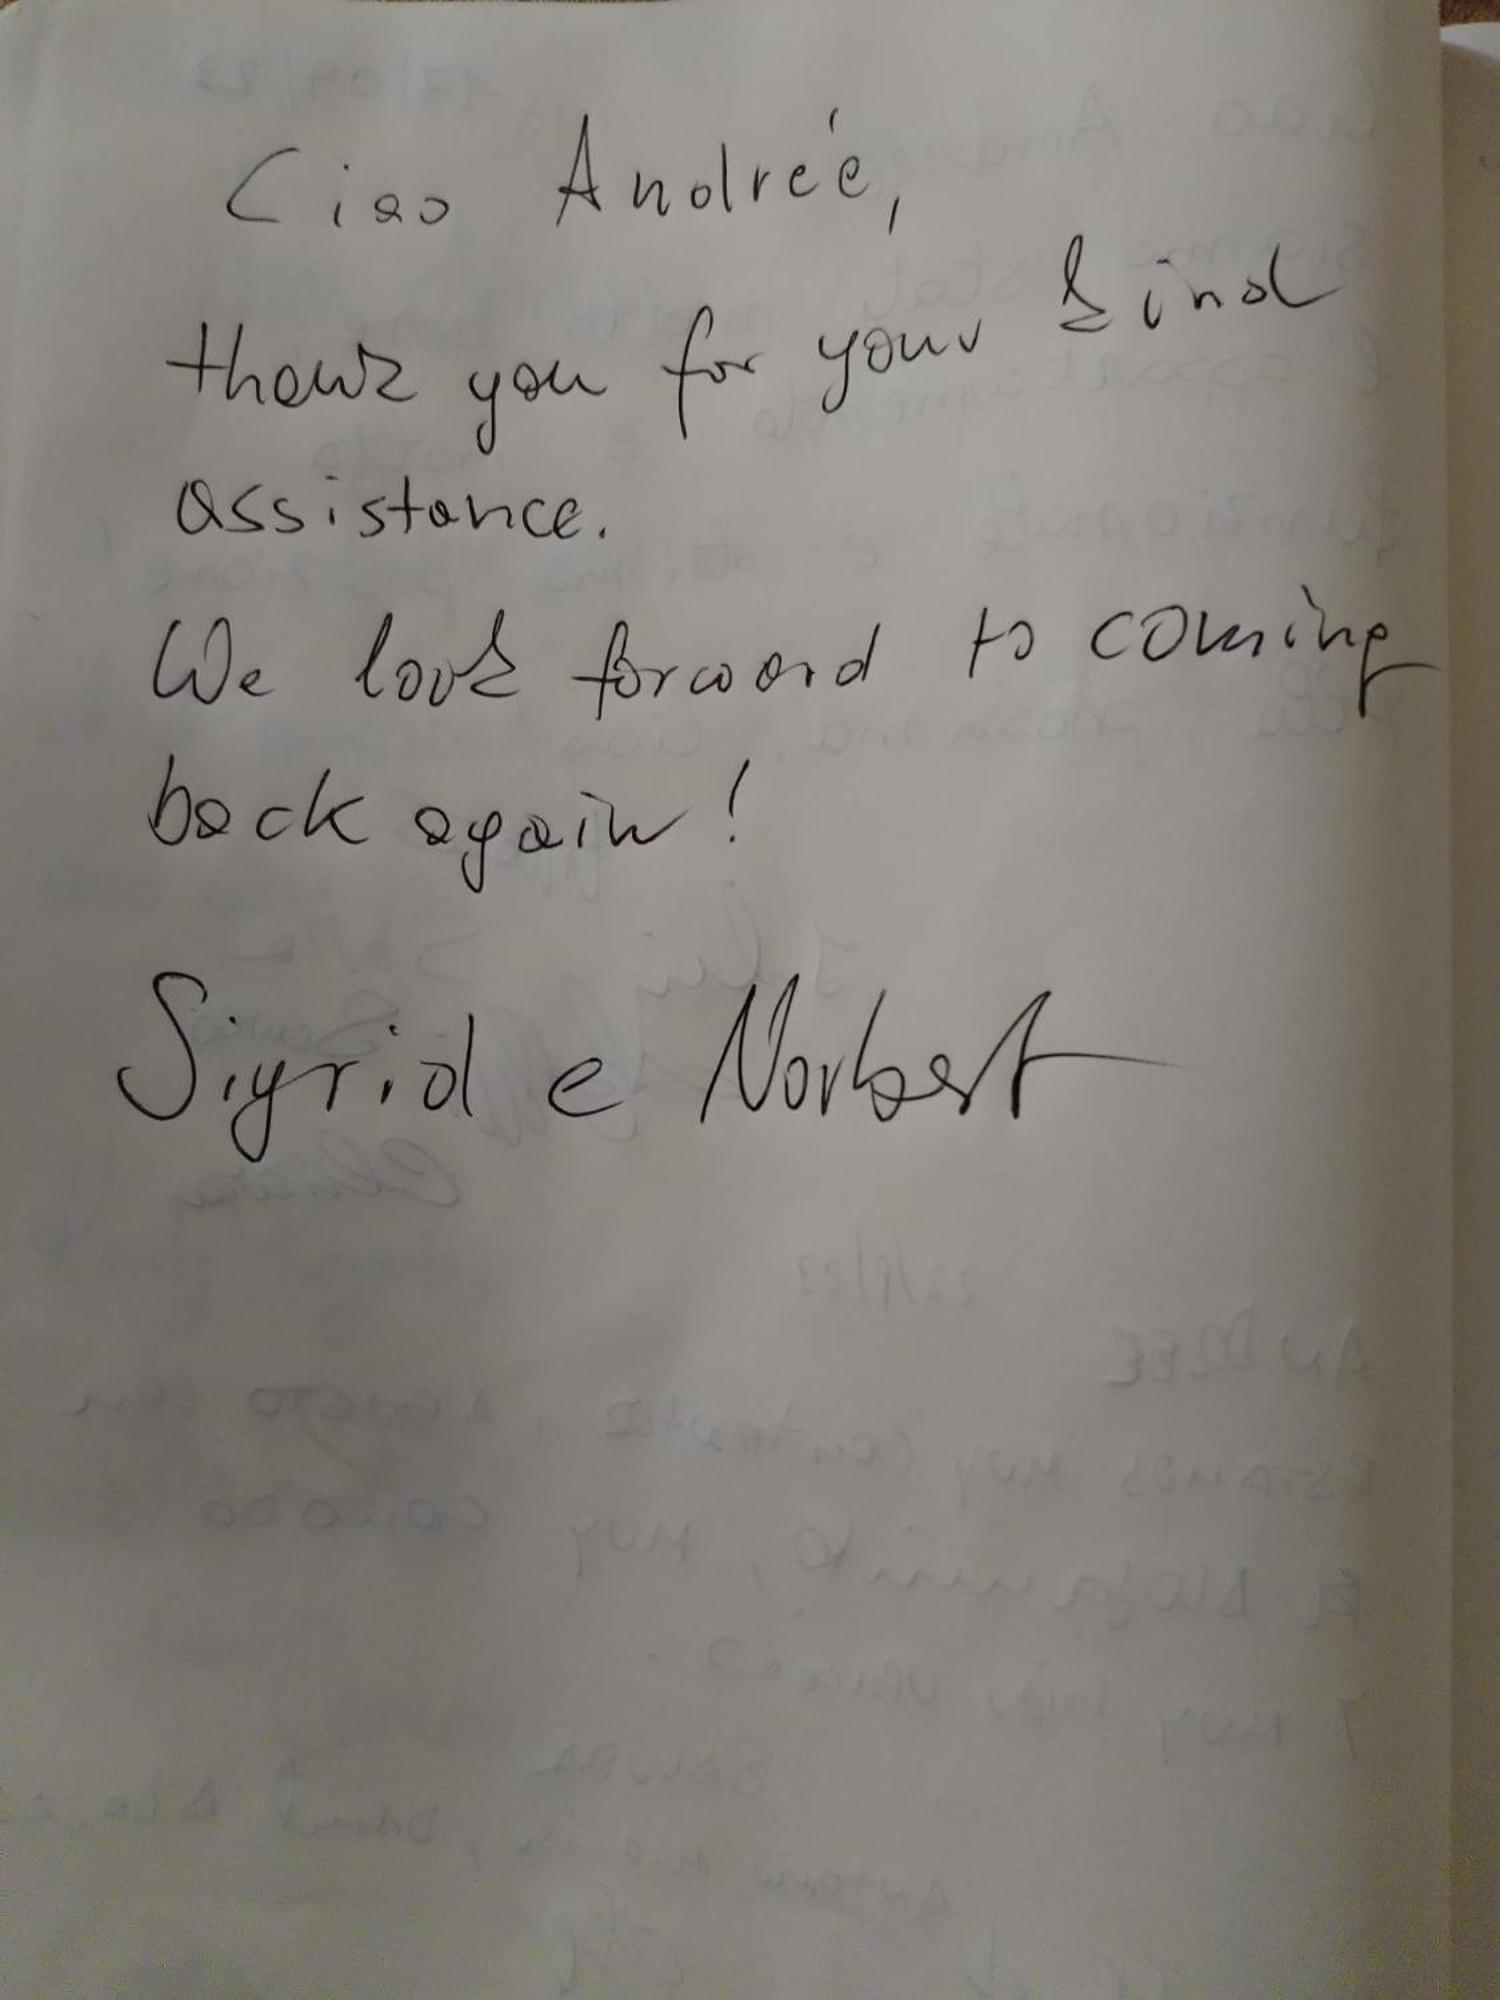 Ciao Andrée,
thank you for your kind
assistance.
We look forward to coming
back again!
Sigrid e Norbert